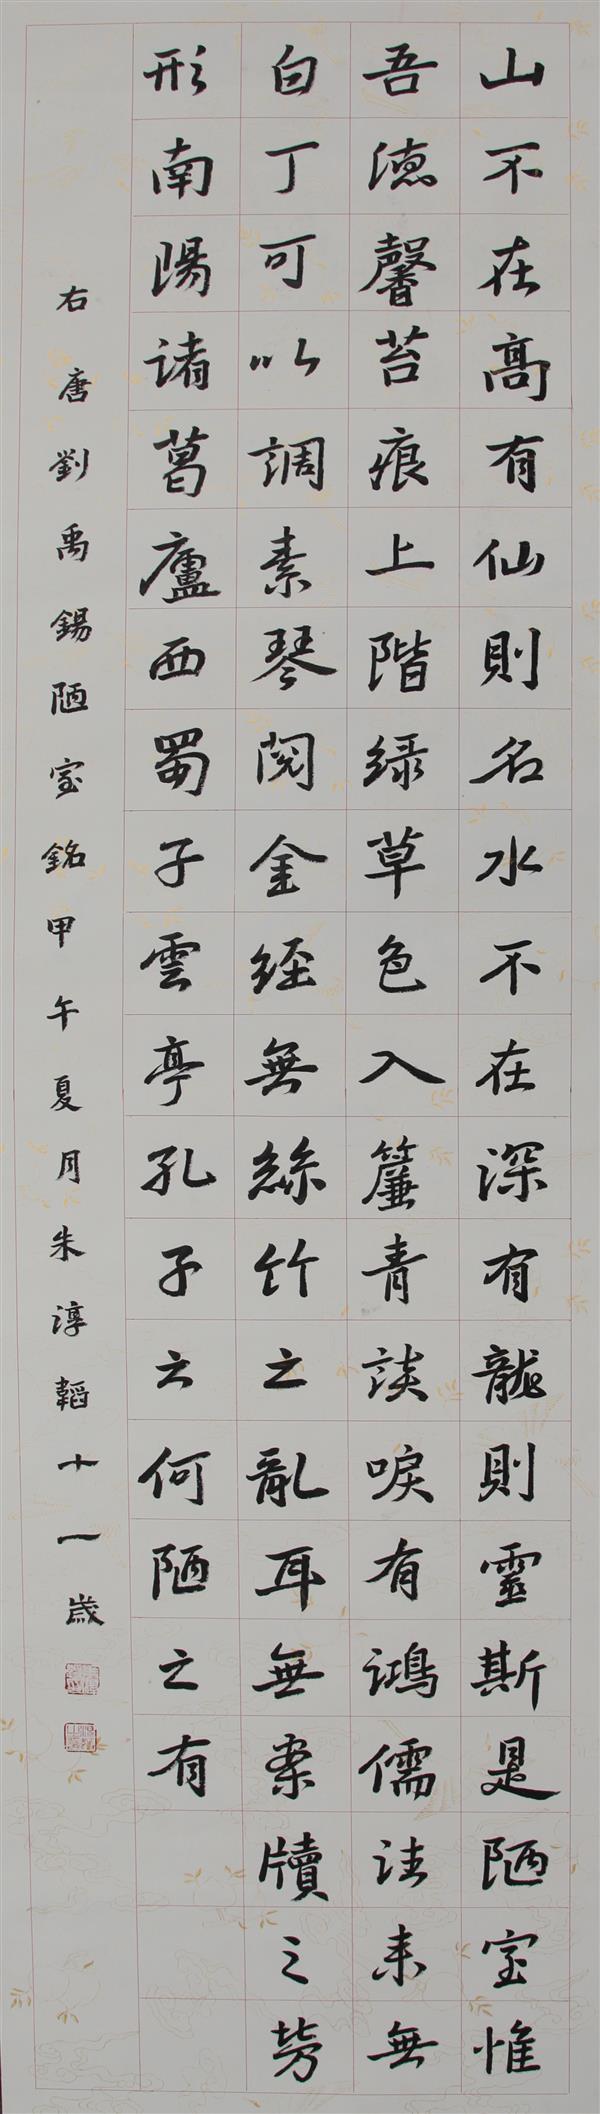 山不在髙有仙則名水不在深有龍則靈斯是陋室惟
吾德馨苔痕上階緑草色入簾青談唳有鴻儒往来無
白丁可以調素琴閱金經無絲竹之亂耳無案牘之勞
形南陽諸葛廬西蜀子雲亭孔子云何陋之有
右唐劉禹錫陋室銘甲午夏月朱淳韜十一歲